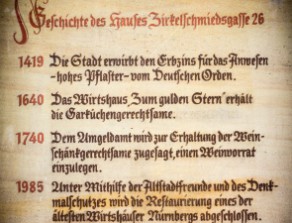 Geschichte des Hauses Zirkelschmiedsgasse 26
1419 Die Stadt erwirbt den Erbzins für das Anwesen
-hohes Pflaster-vom Deutschen Orden.
1640 Das Wirtshaus„Zum gulden Stern“erhält
die Garküchengerechtsame.
1740 Dem Umgeldamt wird zur Erhaltung der Wein-
schänkgerechtsame zugesagt, einen Weinvorrat
einzulegen.
1985 Unter Mithilfe der Altstadtfreunde und des Denk-
malschutzes wird die Restaurierung eines der
ältesten Wirtshäuser Nürnbergs abgeschlossen.